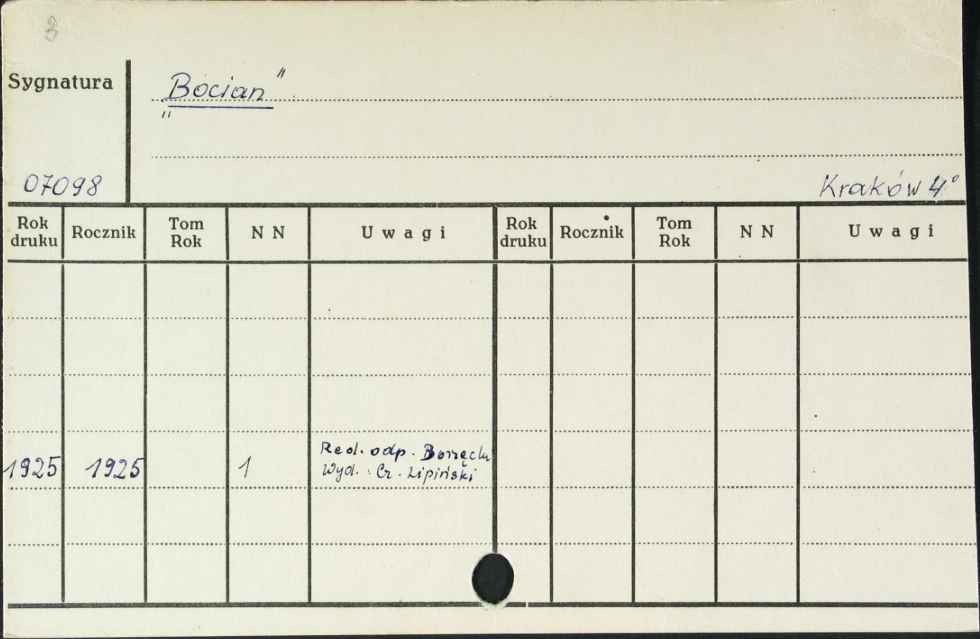 3
Sygnatura
„Bocian"
07098
Kraków 4°
Rok druku Rocznik Tom Rok NN Uwagi Rok druku Rocznik Tom Rok NN Uwagi
1925 1925 1 Red. odp.
Wyd. : Cz. Lipiński